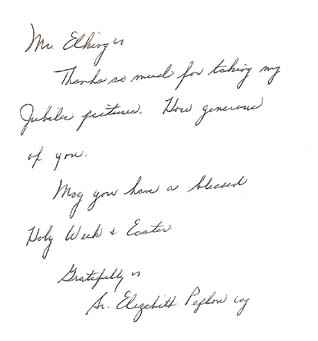 Mr. Elking,
Thanks so much for taking my
Jubilee pictures. How generous
of you.
May you have a blessed
Holy Week & Easter
Gratefully,
Sr. Elizabeth